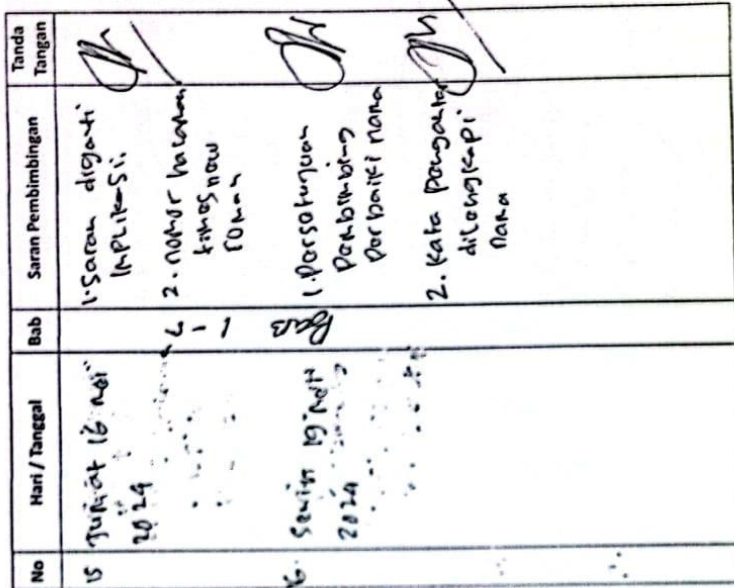 No Hari / Tanggal Bab Saran Pembimbingan Tanda Tangan
15 Jum'at 16 Mei 2024
1. Saran diganti
Implikasi.
2. nomor halaman
times new
roman
16. Senin 19 Mei 2024
Bab
1 -
1. Persetujuan
Pembimbing
Perbaiki nama
2. Kata Pengantar
dilengkapi
nama